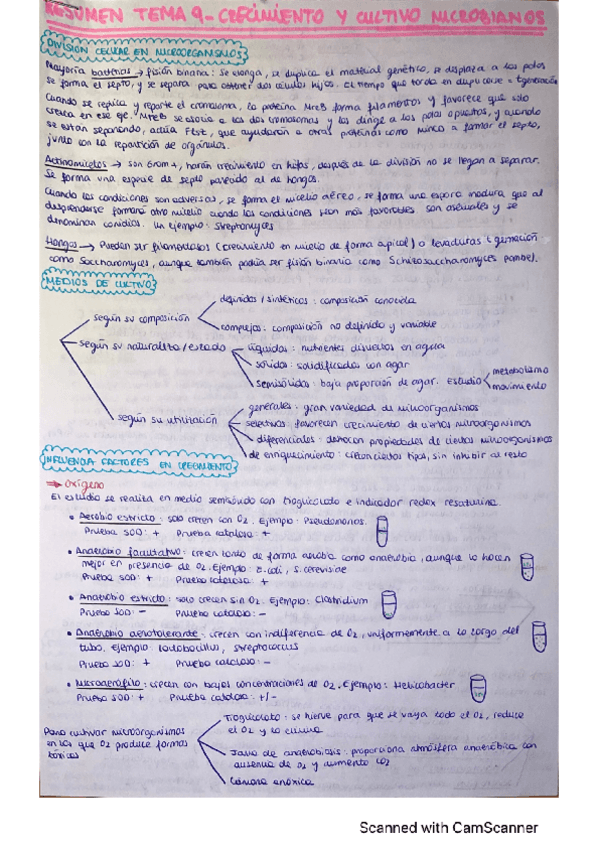 RESUMEN TEMA 9 - CRECIMIENTO Y CULTIVO MICROBIANOS
DIVISIÓN CELULAR EN MICROORGANISMOS
Mayoría bacterias → fisión binaria: se elonga, se duplica el material genético, se desplaza a los polos
se forma el septo, y se separa para obtener dos células hijas. El tiempo que tarda en duplicarse = tgeneración
Cuando se replica y reparte el cromosoma, la proteína MreB forma filamentos y favorece que solo
crezca en ese eje. MreB se asocia a los dos cromosomas y los dirige a los polos opuestos, y cuando
se están separando, actúa FtsZ, que ayudarán a otras proteínas como MinCD a formar el septo,
junto con la repartición de orgánulos.
Actinomicetos → son Gram +, harán crecimiento en hifas, después de la división no se llegan a separar.
Se forma una especie de septo parecido al de hongos.
Cuando las condiciones son adversas, se forma el micelio aéreo, se forma una espora madura que al
desprenderse formará otro micelio cuando las condiciones sean más favorables. son asexuales y se
denominan conidios. Un ejemplo: Streptomyces
Hongos → Pueden ser filamentosos (crecimiento en micelio de forma apical) o levaduras (gemación
como Saccharomyces, aunque también podría ser fisión binaria como Schizosaccharomyces pombe).
MEDIOS DE CULTIVO
según su composición
definidos / sintéticos: composición conocida
complejos: composición no definida y variable
según su naturaleza / estado
líquidos: nutrientes disueltos en agua
sólidos: solidificados con agar
semisólidos: baja proporción de agar. Estudio
metabolismo
movimiento
según su utilización
generales: gran variedad de microorganismos
selectivos: favorecen crecimiento de ciertos microorganismos
diferenciales: destacan propiedades de ciertos microorganismos
de enriquecimiento: crecen ciertos tipos, sin inhibir al resto
INFLUENCIA FACTORES EN CRECIMIENTO
→ Oxígeno
El estudio se realiza en medio semisólido con tioglicolato e indicador redox resazurina.
• Aerobio estricto: solo crecen con O2. Ejemplo: Pseudomonas.
Prueba SOD: + Prueba catalasa: +
• Anaerobio facultativo: crecen tanto de forma aerobia como anaerobia, aunque lo hacen
mejor en presencia de O2. Ejemplo: E.coli, S. cerevisiae
Prueba SOD: + Prueba catalasa: +
• Anaerobio estricto: solo crecen sin O2. Ejemplo: Clostridium
Prueba SOD: - Prueba catalasa: -
• Anaerobio aerotolerante: crecen con indiferencia de O2, uniformemente a lo largo del
tubo. Ejemplo: Lactobacillus, Streptococcus
Prueba SOD: + Prueba catalasa: -
• Microaerófilo: crecen con bajas concentraciones de O2. Ejemplo: Helicobacter
Prueba SOD: + Prueba catalasa: +/-
Para cultivar microorganismos
en los que O2 produce formas
tóxicas
Tioglicolato: se hierve para que se vaya todo el O2, reduce
el O2 y lo elimina
Jarra de anaerobiosis: proporciona atmósfera anaeróbica con
ausencia de O2 y aumento CO2
Cámara anóxica
Scanned with CamScanner